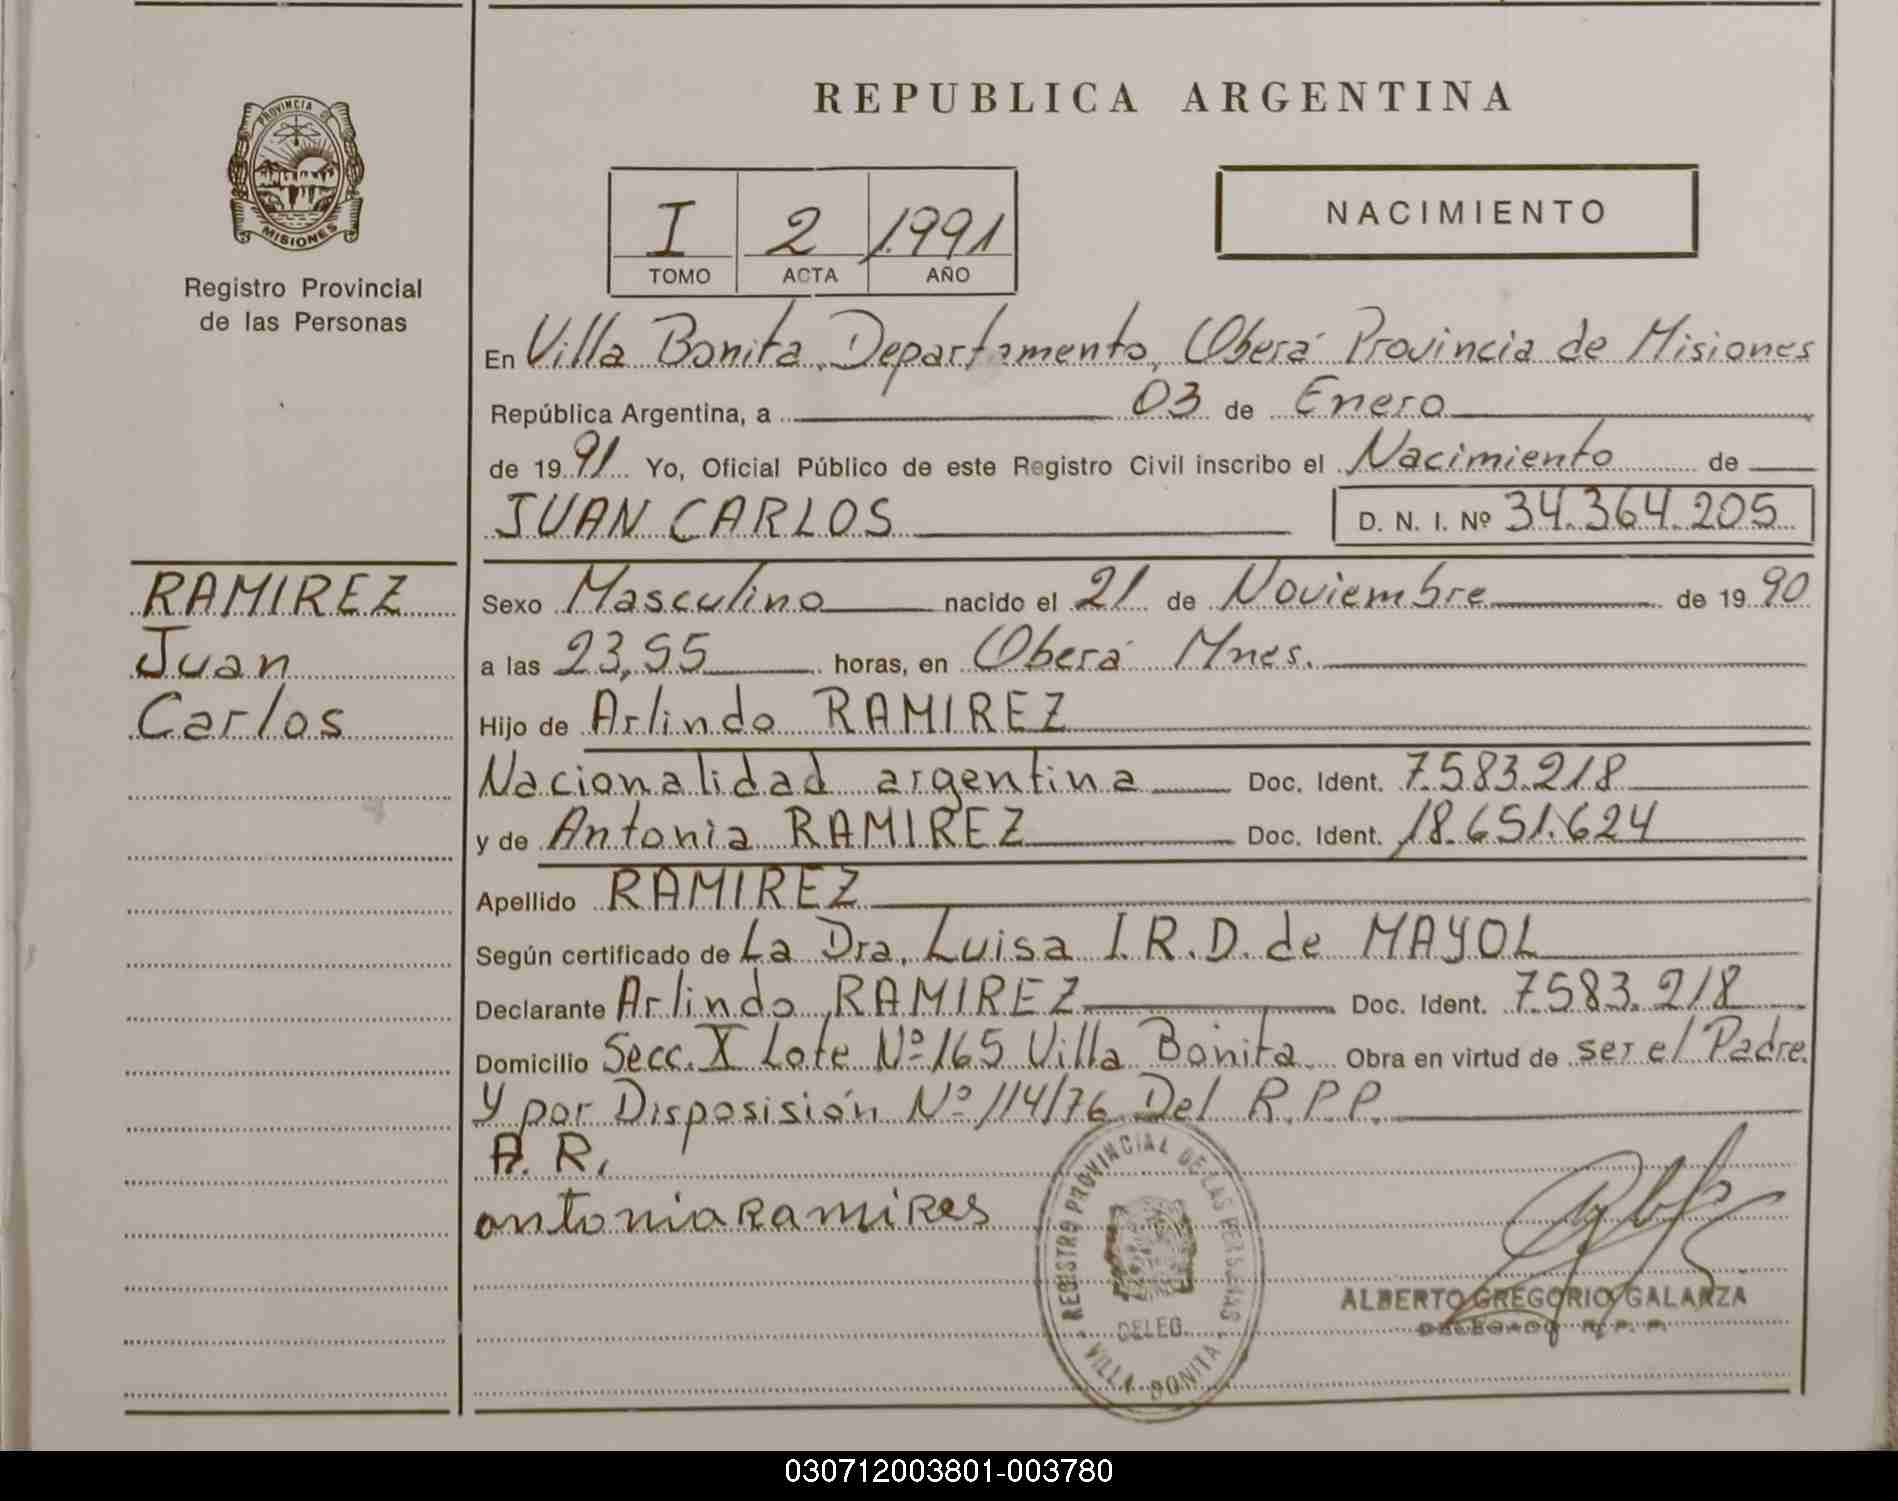 REPUBLICA ARGENTINA
PROVINCIA DE
MISIONES
Registro Provincial
de las Personas
I 2 1991
TOMO ACTA AÑO
NACIMIENTO
En Villa Bonita, Departamento, Oberá Provincia de Misiones
República Argentina, a 03 de Enero
de 1991 Yo, Oficial Público de este Registro Civil inscribo el Nacimiento de
JUAN CARLOS D. N. I. Nº 34.364.205
RAMIREZ
Juan
Carlos
Sexo Masculino nacido el 21 de Noviembre de 1990
a las 23,55 horas, en Oberá Mnes.
Hijo de Arlindo RAMIREZ
Nacionalidad argentina Doc. Ident. 7.583.218
y de Antonia RAMIREZ Doc. Ident. 18.651.624
Apellido RAMIREZ
Según certificado de La Dra. Luisa I.R.D. de MAYOL
Declarante Arlindo RAMIREZ Doc. Ident. 7.583.218
Domicilio Secc. X Lote Nº 165 Villa Bonita Obra en virtud de ser el Padre.
y por Disposisión Nº 114/76 Del R.P.P.
A. R.
antonia Ramires
REGISTRO PROVINCIAL DE LAS PERSONAS
DELEG.
VILLA BONITA
ALBERTO GREGORIO GALARZA
DELEGADO R. P. P.
030712003801-003780